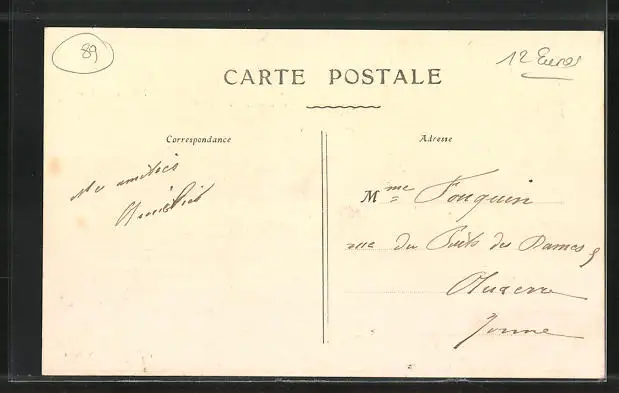 89
12 Euros
CARTE POSTALE
Correspondance
Adresse
Mes amitiés
Mme Fouquin
rue du Puits des Dames
Auxerre
Yonne